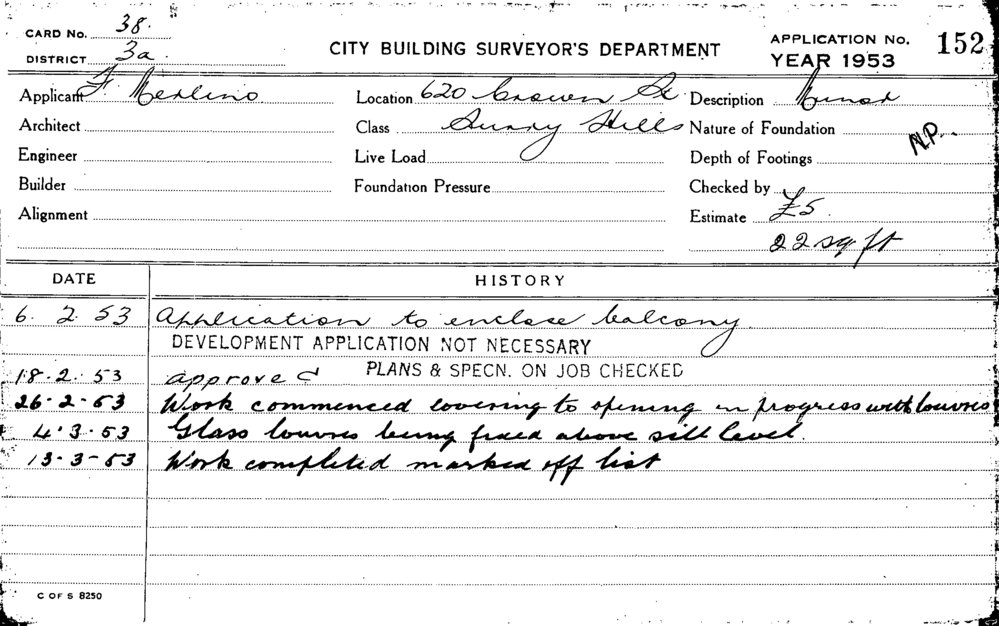 CARD No. 38.
DISTRICT 3a.
CITY BUILDING SURVEYOR'S DEPARTMENT
APPLICATION No. 152
YEAR 1953
Applicant F. Merlino Location 620 Crown St Description Minor
Architect Class Surry Hills Nature of Foundation N.P.
Engineer Live Load Depth of Footings
Builder Foundation Pressure Checked by
Alignment Estimate £5
22 sq ft
DATE HISTORY
6. 2. 53 Application to enclose balcony.
DEVELOPMENT APPLICATION NOT NECESSARY
18.2.53 approved PLANS & SPECN. ON JOB CHECKED
26-2-53 Work commenced covering to opening in progress with louvres
4.3.53 Glass louvres being fixed above sill level.
13-3-53 Work completed marked off list
C OF S 8250